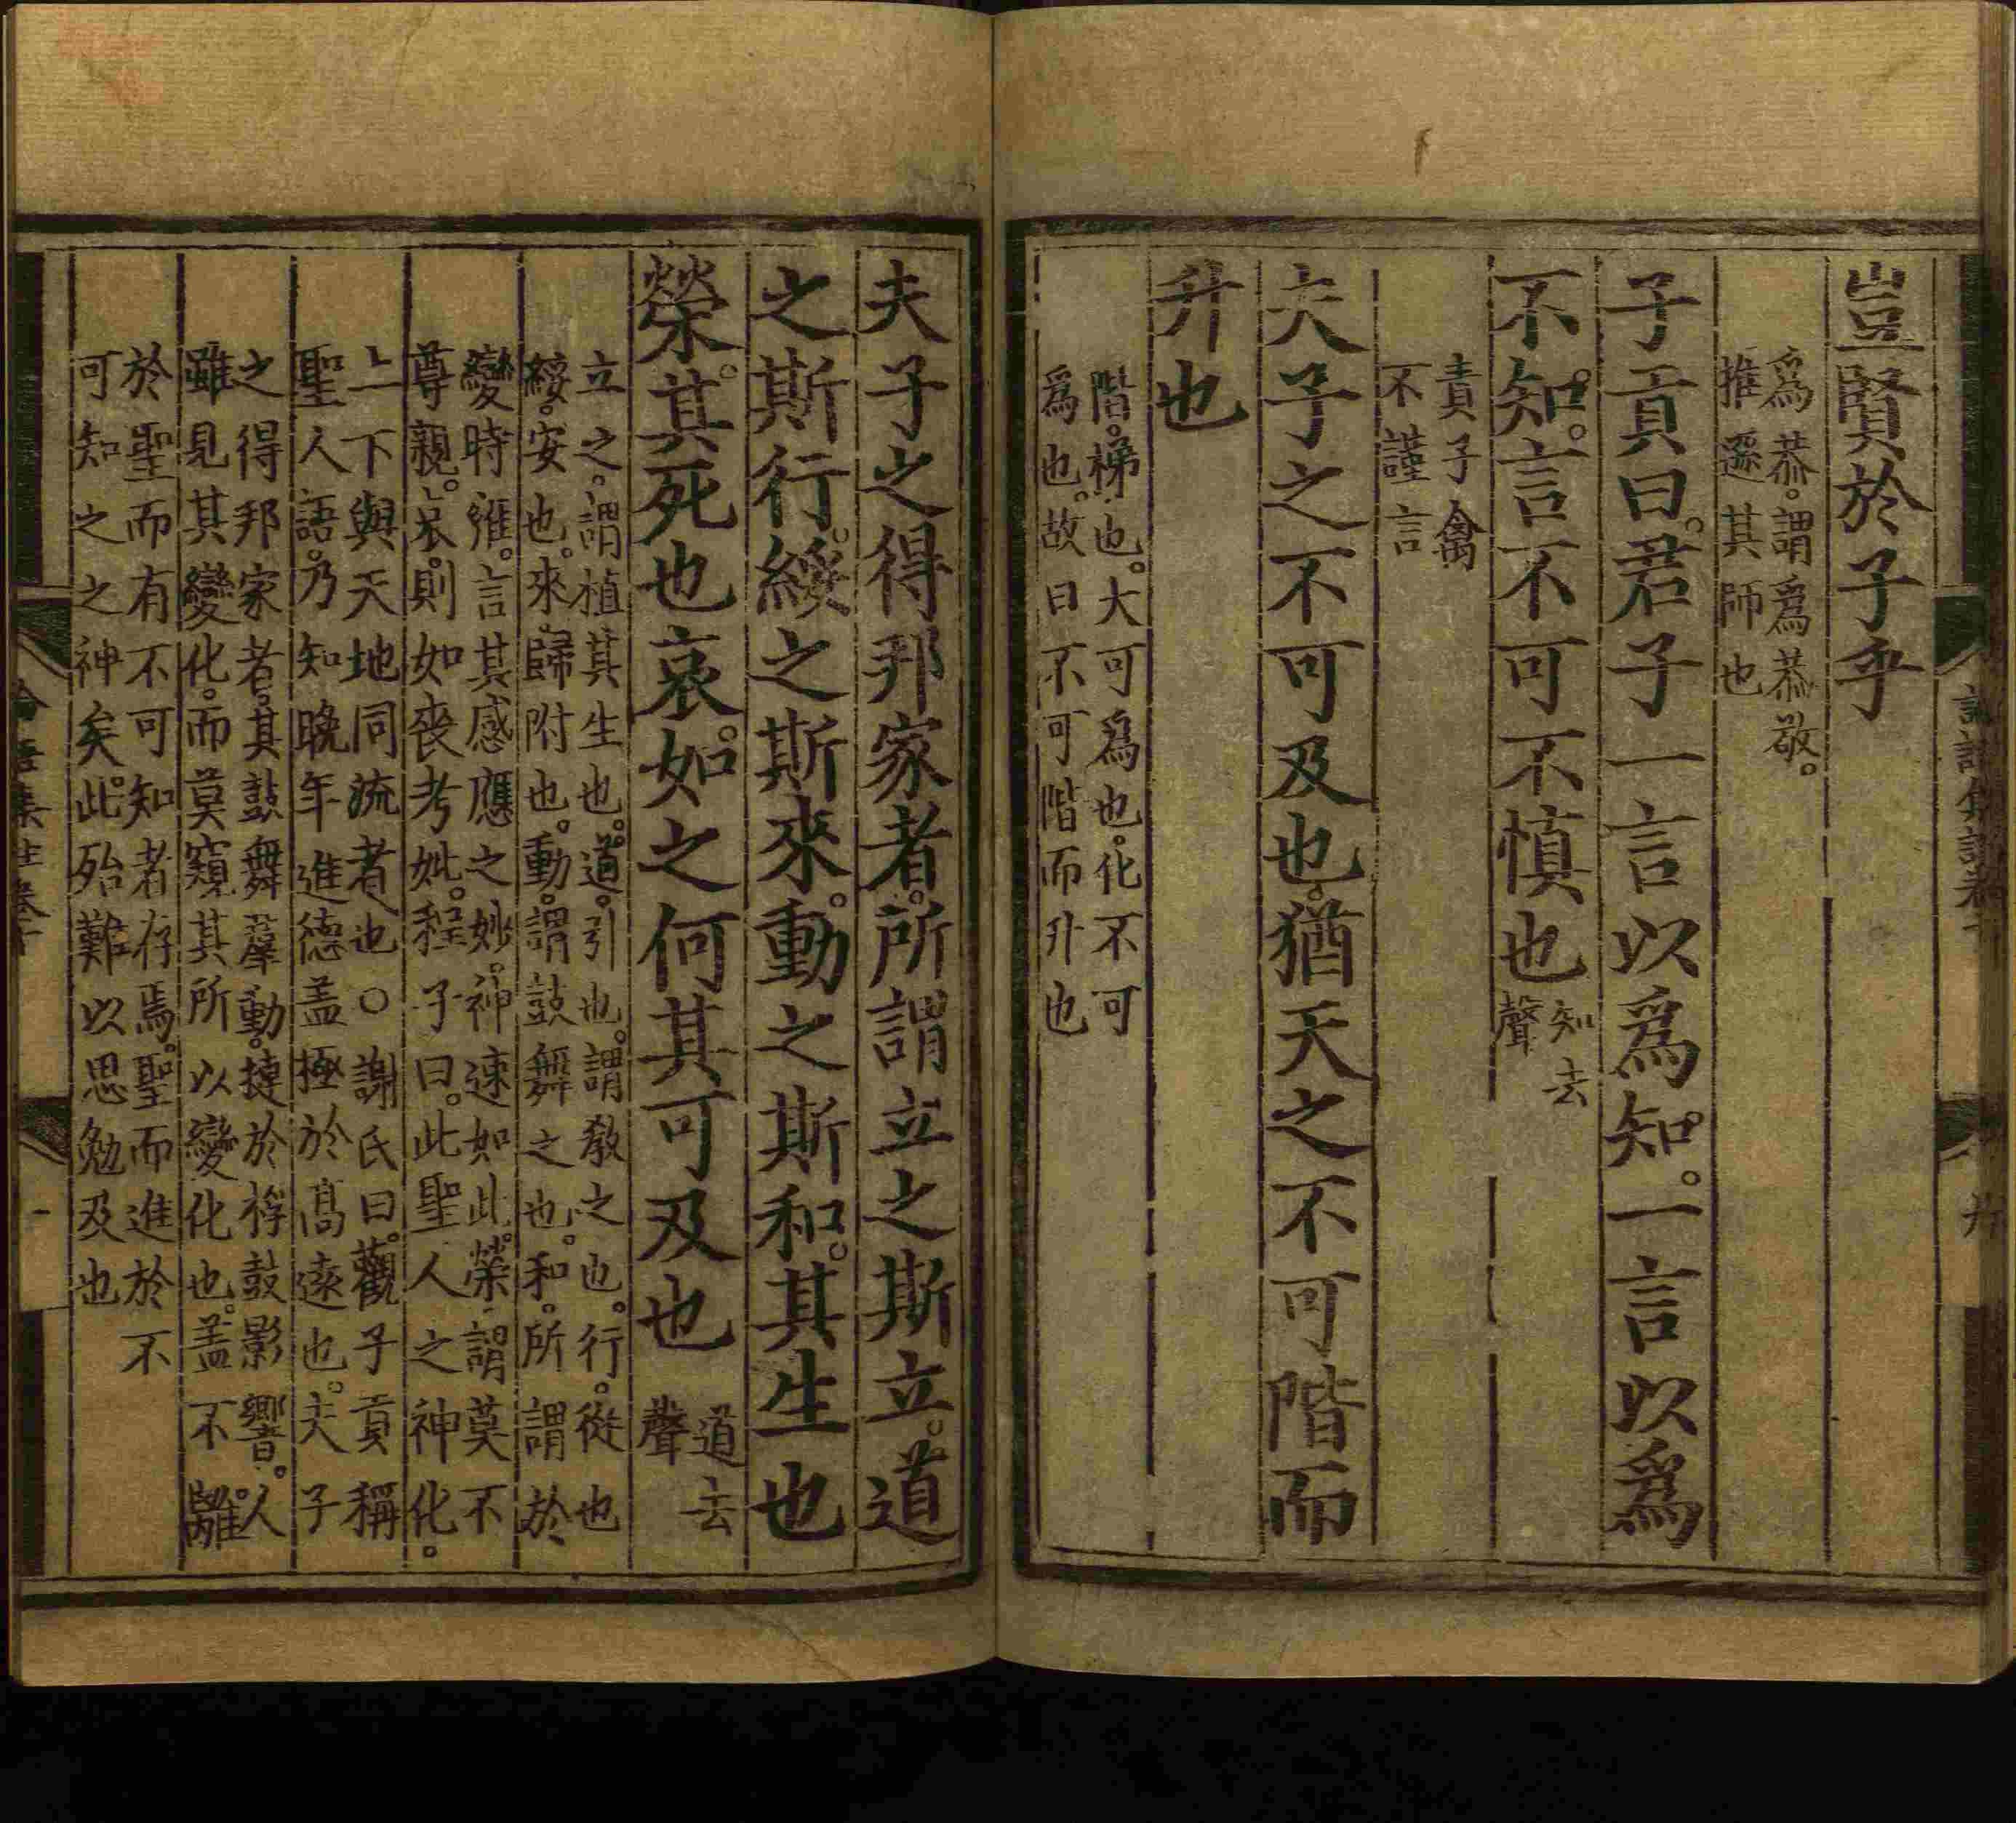 豈賢於子乎
爲恭。謂爲恭敬。
推遜其師也
子貢曰。君子一言以爲知。一言以爲
不知。言不可不慎也
知去
聲
責子禽
不謹言
夫子之不可及也。猶天之不可階而
升也
階。梯也。大可爲也。化不可
爲也。故曰不可階而升也
夫子之得邦家者。所謂立之斯立。道
之斯行。綏之斯來。動之斯和。其生也
榮。其死也哀。如之何其可及也
道去
聲
立之。謂植其生也。道。引也。謂敎之也。行。從也
綏。安也。來。歸附也。動。謂鼓舞之也。和。所謂於
變時雍。言其感應之妙。神速如此。榮。謂莫不
尊親。哀。則如喪考妣。程子曰。此聖人之神化。
上下與天地同流者也○謝氏曰。觀子貢稱
聖人語。乃知晚年進德盖極於高遠也。夫子
之得邦家者。其鼓舞羣動。捷於桴鼓影響。人
雖見其變化。而莫窺其所以變化也。盖不離
於聖而有不可知者存焉。聖而進於不
可知之之神矣。此殆難以思勉及也